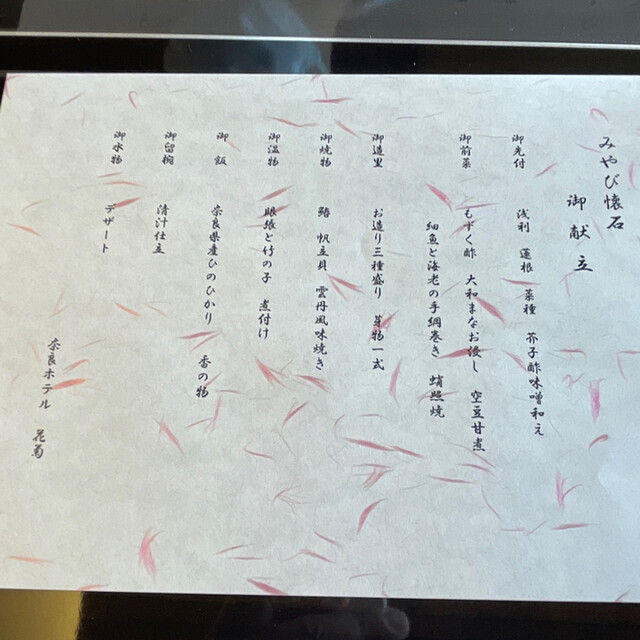 みやび懐石
御献立
御先付 浅利 蓮根 菜種 芥子酢味噌和え
御前菜 もずく酢 大和まなお浸し 空豆甘煮
細魚と海老の手綱巻き 蛸照焼
御造里 お造り三種盛り 芽物一式
御焼物 鰆 帆立貝 雲丹風味焼き
御温物 眼張と竹の子 煮付け
御飯 奈良県産ひのひかり 香の物
御留椀 清汁仕立
御水物 デザート
奈良ホテル 花菊